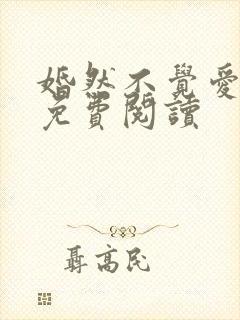 婚然不覺愛
免費閱讀
聶高民